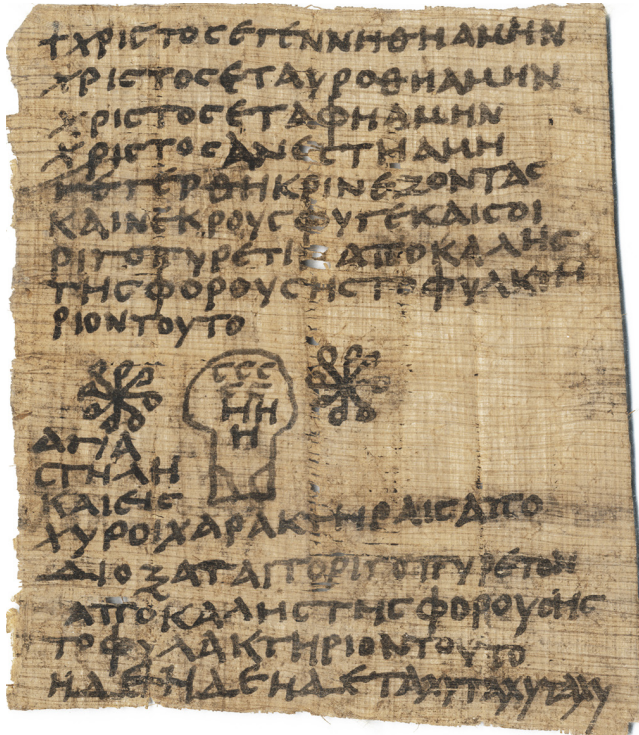 ☧ΧΡΙϹΤΟϹΕΓΕΝΝΗΘΗΑΜΗΝ
ΧΡΙϹΤΟϹΕϹΤΑΥΡΟΘΗΑΜΗΝ
ΧΡΙϹΤΟϹΕΤΑΦΗΑΜΗΝ
ΧΡΙϹΤΟϹΑΝΕϹΤΗΑΜΗ
ΓΕΓΕΡΘΗΚΡΙΝΕΖΟΝΤΑϹ
ΚΑΙΝΕΚΡΟΥϹΦΥΓΕΚΑΙϹΟΙ
ΡΙΓΟΠΥΡΕΤΙΝ ΑΠΟΚΑΛΗϹ
ΤΗϹΦΟΡΟΥϹΗϹΤΟΦΥΛΚΤΗ
ΡΙΟΝΤΟΥΤΟ
ϹϹϹ
ΗΗ
Η
ΑΓΙΑ
ϹΤΗΛΗ
ΚΑΙΕΙϹ
ΧΥΡΟΙΧΑΡΑΚΤΗΡΑΙϹΑΠΟ
ΔΙΟΞΑΤΑΙΤΟΡΙΓΟΠΥΡΕΤΟΝ
ΑΠΟΚΑΛΗϹΤΗϹΦΟΡΟΥϹΗϹ
ΤΟΦΥΛΑΚΤΗΡΙΟΝΤΟΥΤΟ
ΗΔΕΗΔΕΗΔΕΤΑΧΥΤΑΧΥΤΑΧΥ